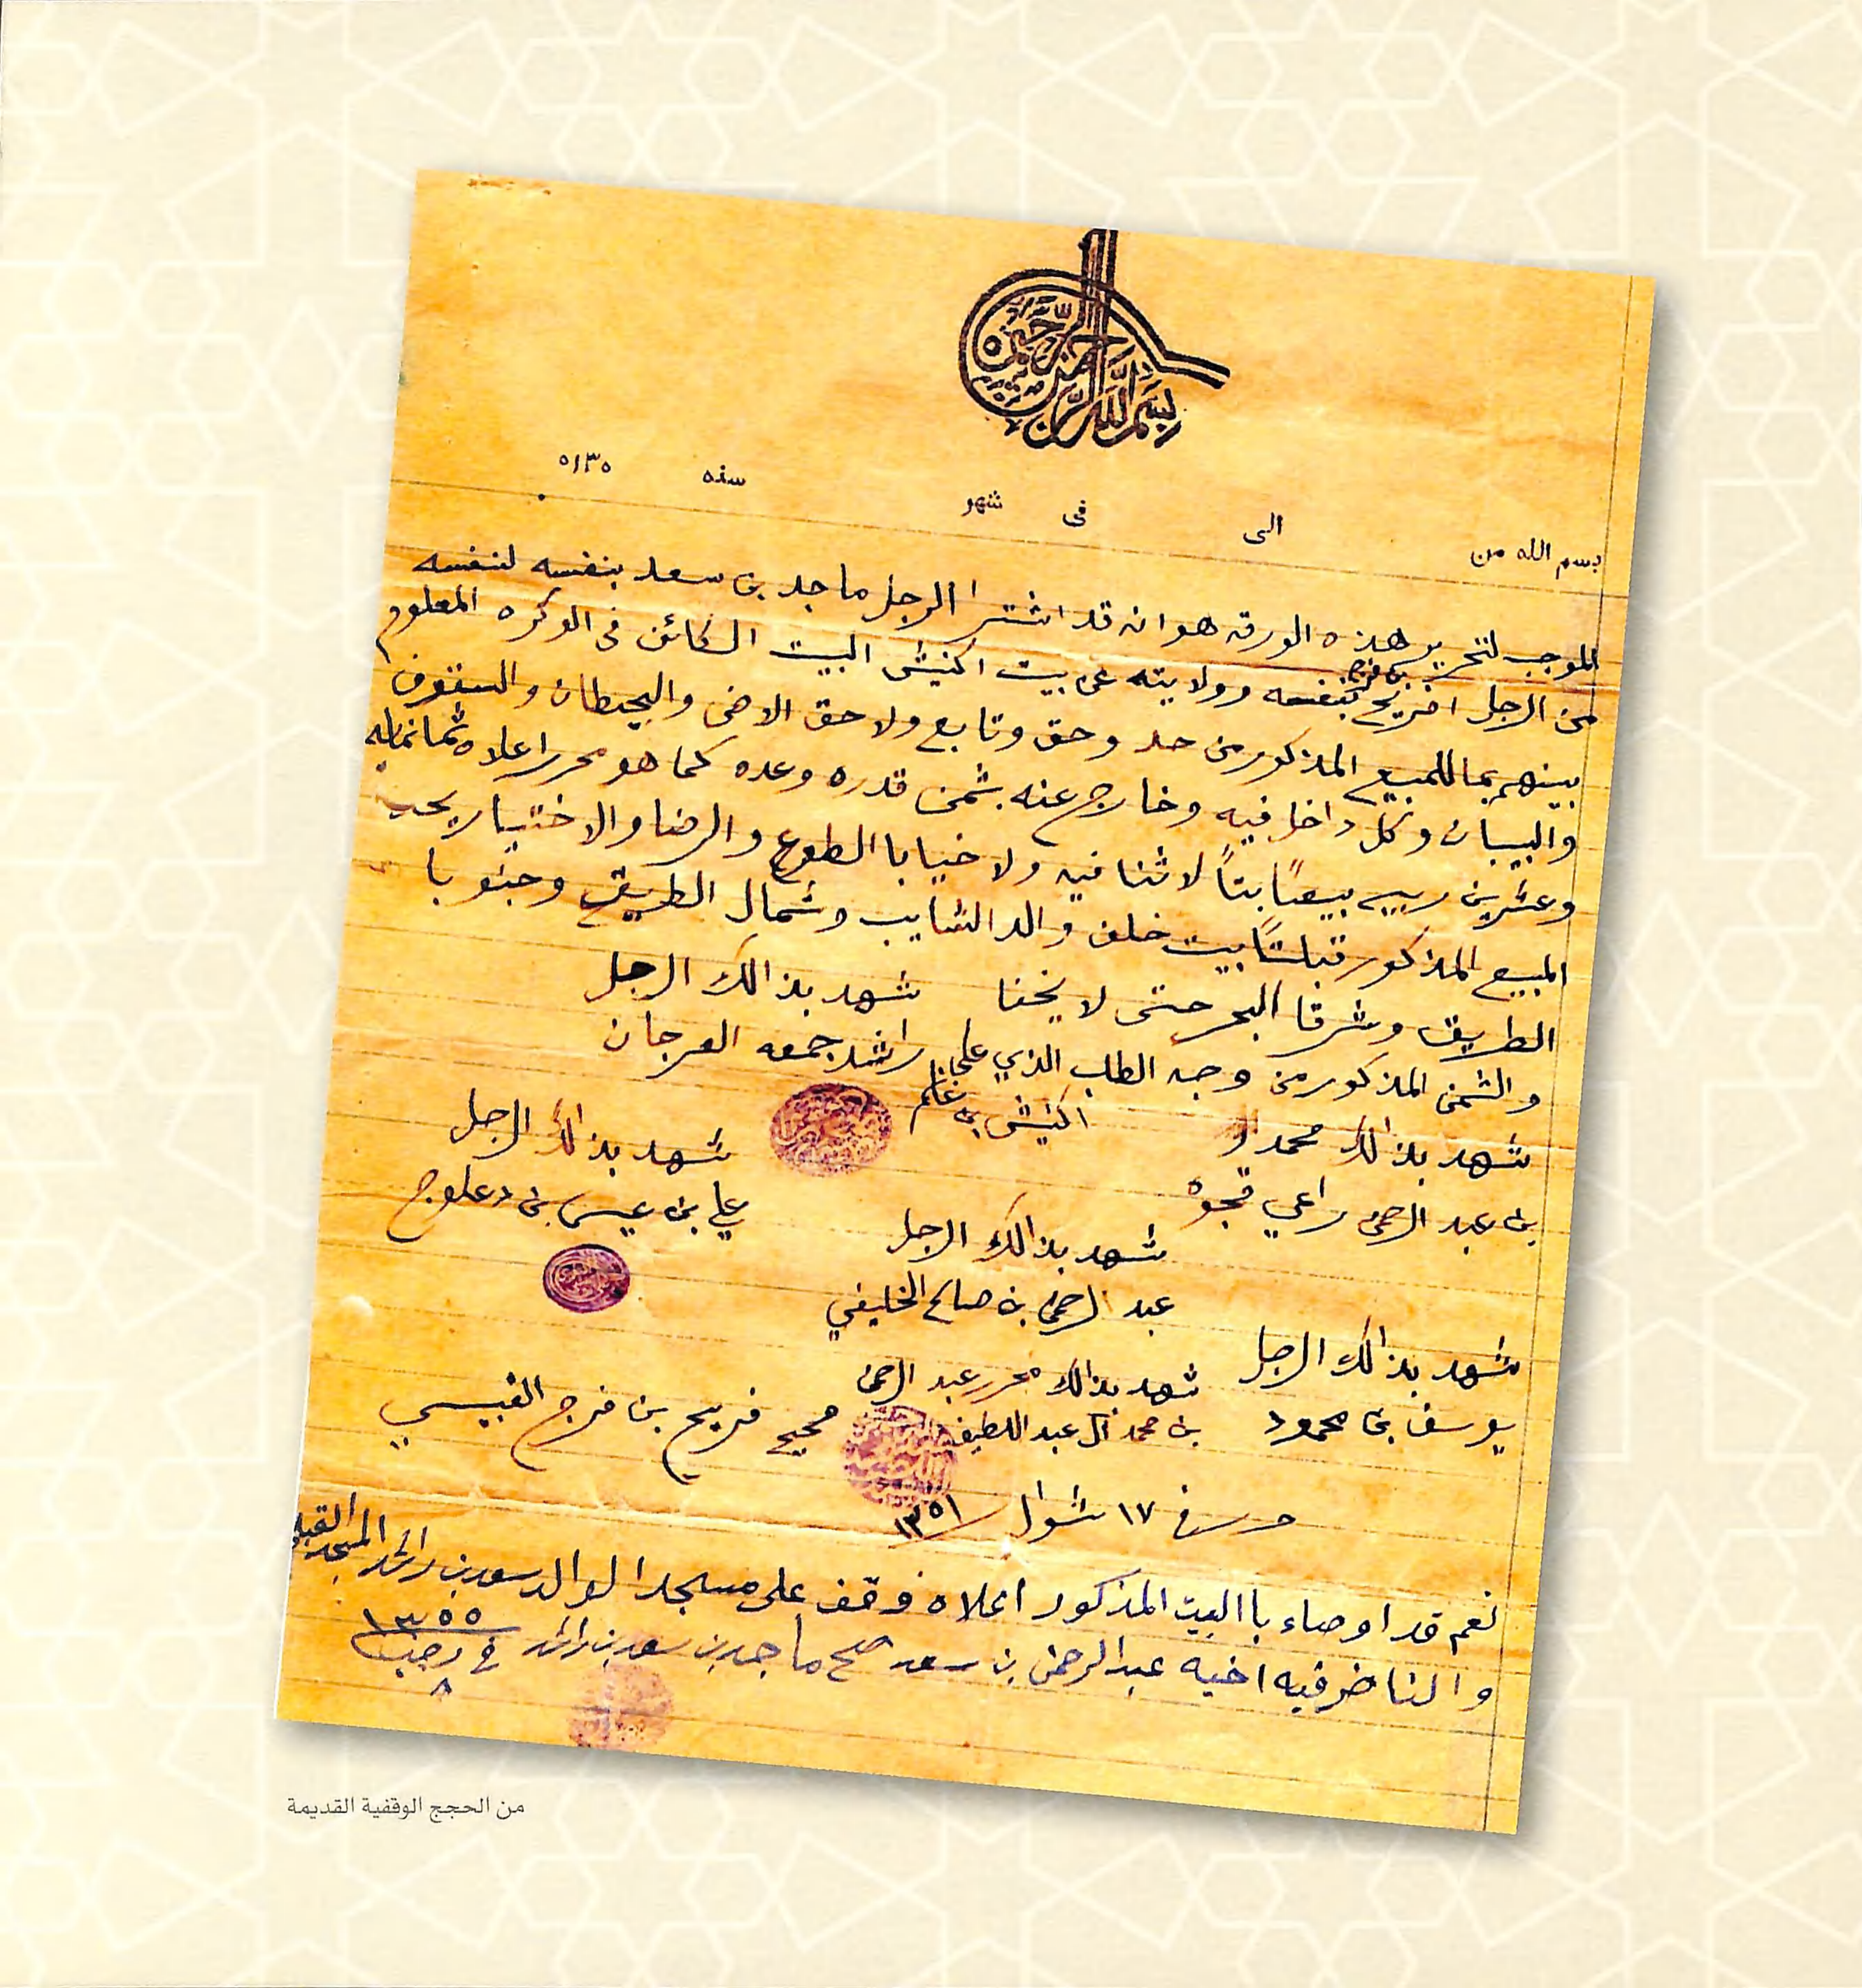 بسم الله الرحمن الرحيم
بسم الله من الى فى شهر سنه ١٣٥
الموجب لتحرير هذه الورقه هو انه قد اشترا الرجل ماجد بن سعد بنفسه لنفسه
من الرجل افريح بن فرج بنفسه وولايته عن بيت اكنيش البيت الكائن فى الوكره المعلوم
بينهم بما للمبيع المذكور من حد وحق وتابع ولاحق الارض والحيطان والسقوف
والبيبان وكل داخل فيه وخارج عنه بثمن قدره وعده كما هو محرر اعلاه ثمانمايه
وعشرين ربيه بيعًا بتاً لا ثنا فيه ولا خيا با الطوع والرضا والاختيار يحد
المبيع المذكور قبلتاً بيت خلف والد الشايب وشمال الطريق وجنوبا
الطريق وشرقا البحر حتى لا يخفا شهد بذالك الرجل
والثمن المذكور من وجه الطلب الذي على راشد جمعه العرجان
اكنيش بن غانم
شهد بذالك محمد شهد بذالك الرجل
بن عبد الرحمن راعي قجوه علي بن عيسى بن دعلوج
شهد بذالك الرجل
عبد الرحمن بن صالح الخليفي
شهد بذالك الرجل شهد بذالك محرره عبد الرحمن
يوسف بن محمود بن محمد آل عبد اللطيف صحيح فريح بن فرج القبيسي
حرر في ١٧ شوال ١٣٥١
نعم قد اوصاء با البيت المذكور اعلاه وقف على مسجد الوالد سعد بن راشد المسجد القبلي
والناضر فيه اخيه عبد الرحمن بن سعد صح ماجد بن سعد بن راشد في رجب ١٣٥٥
٨
من الحجج الوقفية القديمة